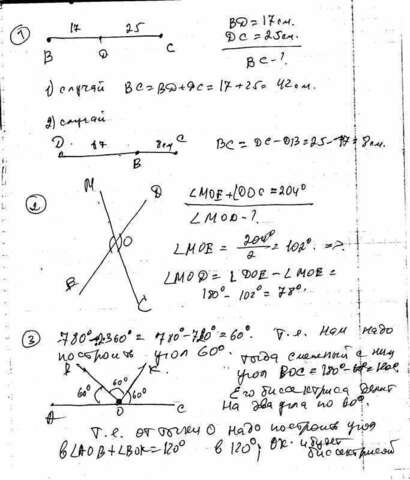 1
17 25
B D C
BD = 17 см.
DC = 25 см.
BC - ?
1) случай BC = BD + DC = 17 + 25 = 42 см.
2) случай
D 17 8см C
B
BC = DC - DB = 25 - 17 = 8 см.
2
M D
O
E C
∠MOE + ∠DOC = 204°
∠MOD - ?
∠MOE = 204°/2 = 102° =>
∠MOD = ∠DOE - ∠MOE =
180° - 102° = 78°.
3
780° - 2·360° = 780° - 720° = 60°. Т.е. нам надо
построить угол 60°.
Тогда смежный с ним
угол BOC = 180° - 60° = 120°.
Его биссектриса делит
на два угла по 60°.
B K
60° 60° 60°
A O C
Т.е. от точки O надо построить угол
в ∠AOB + ∠BOK = 120° в 120°, OK и будет
биссектрисой